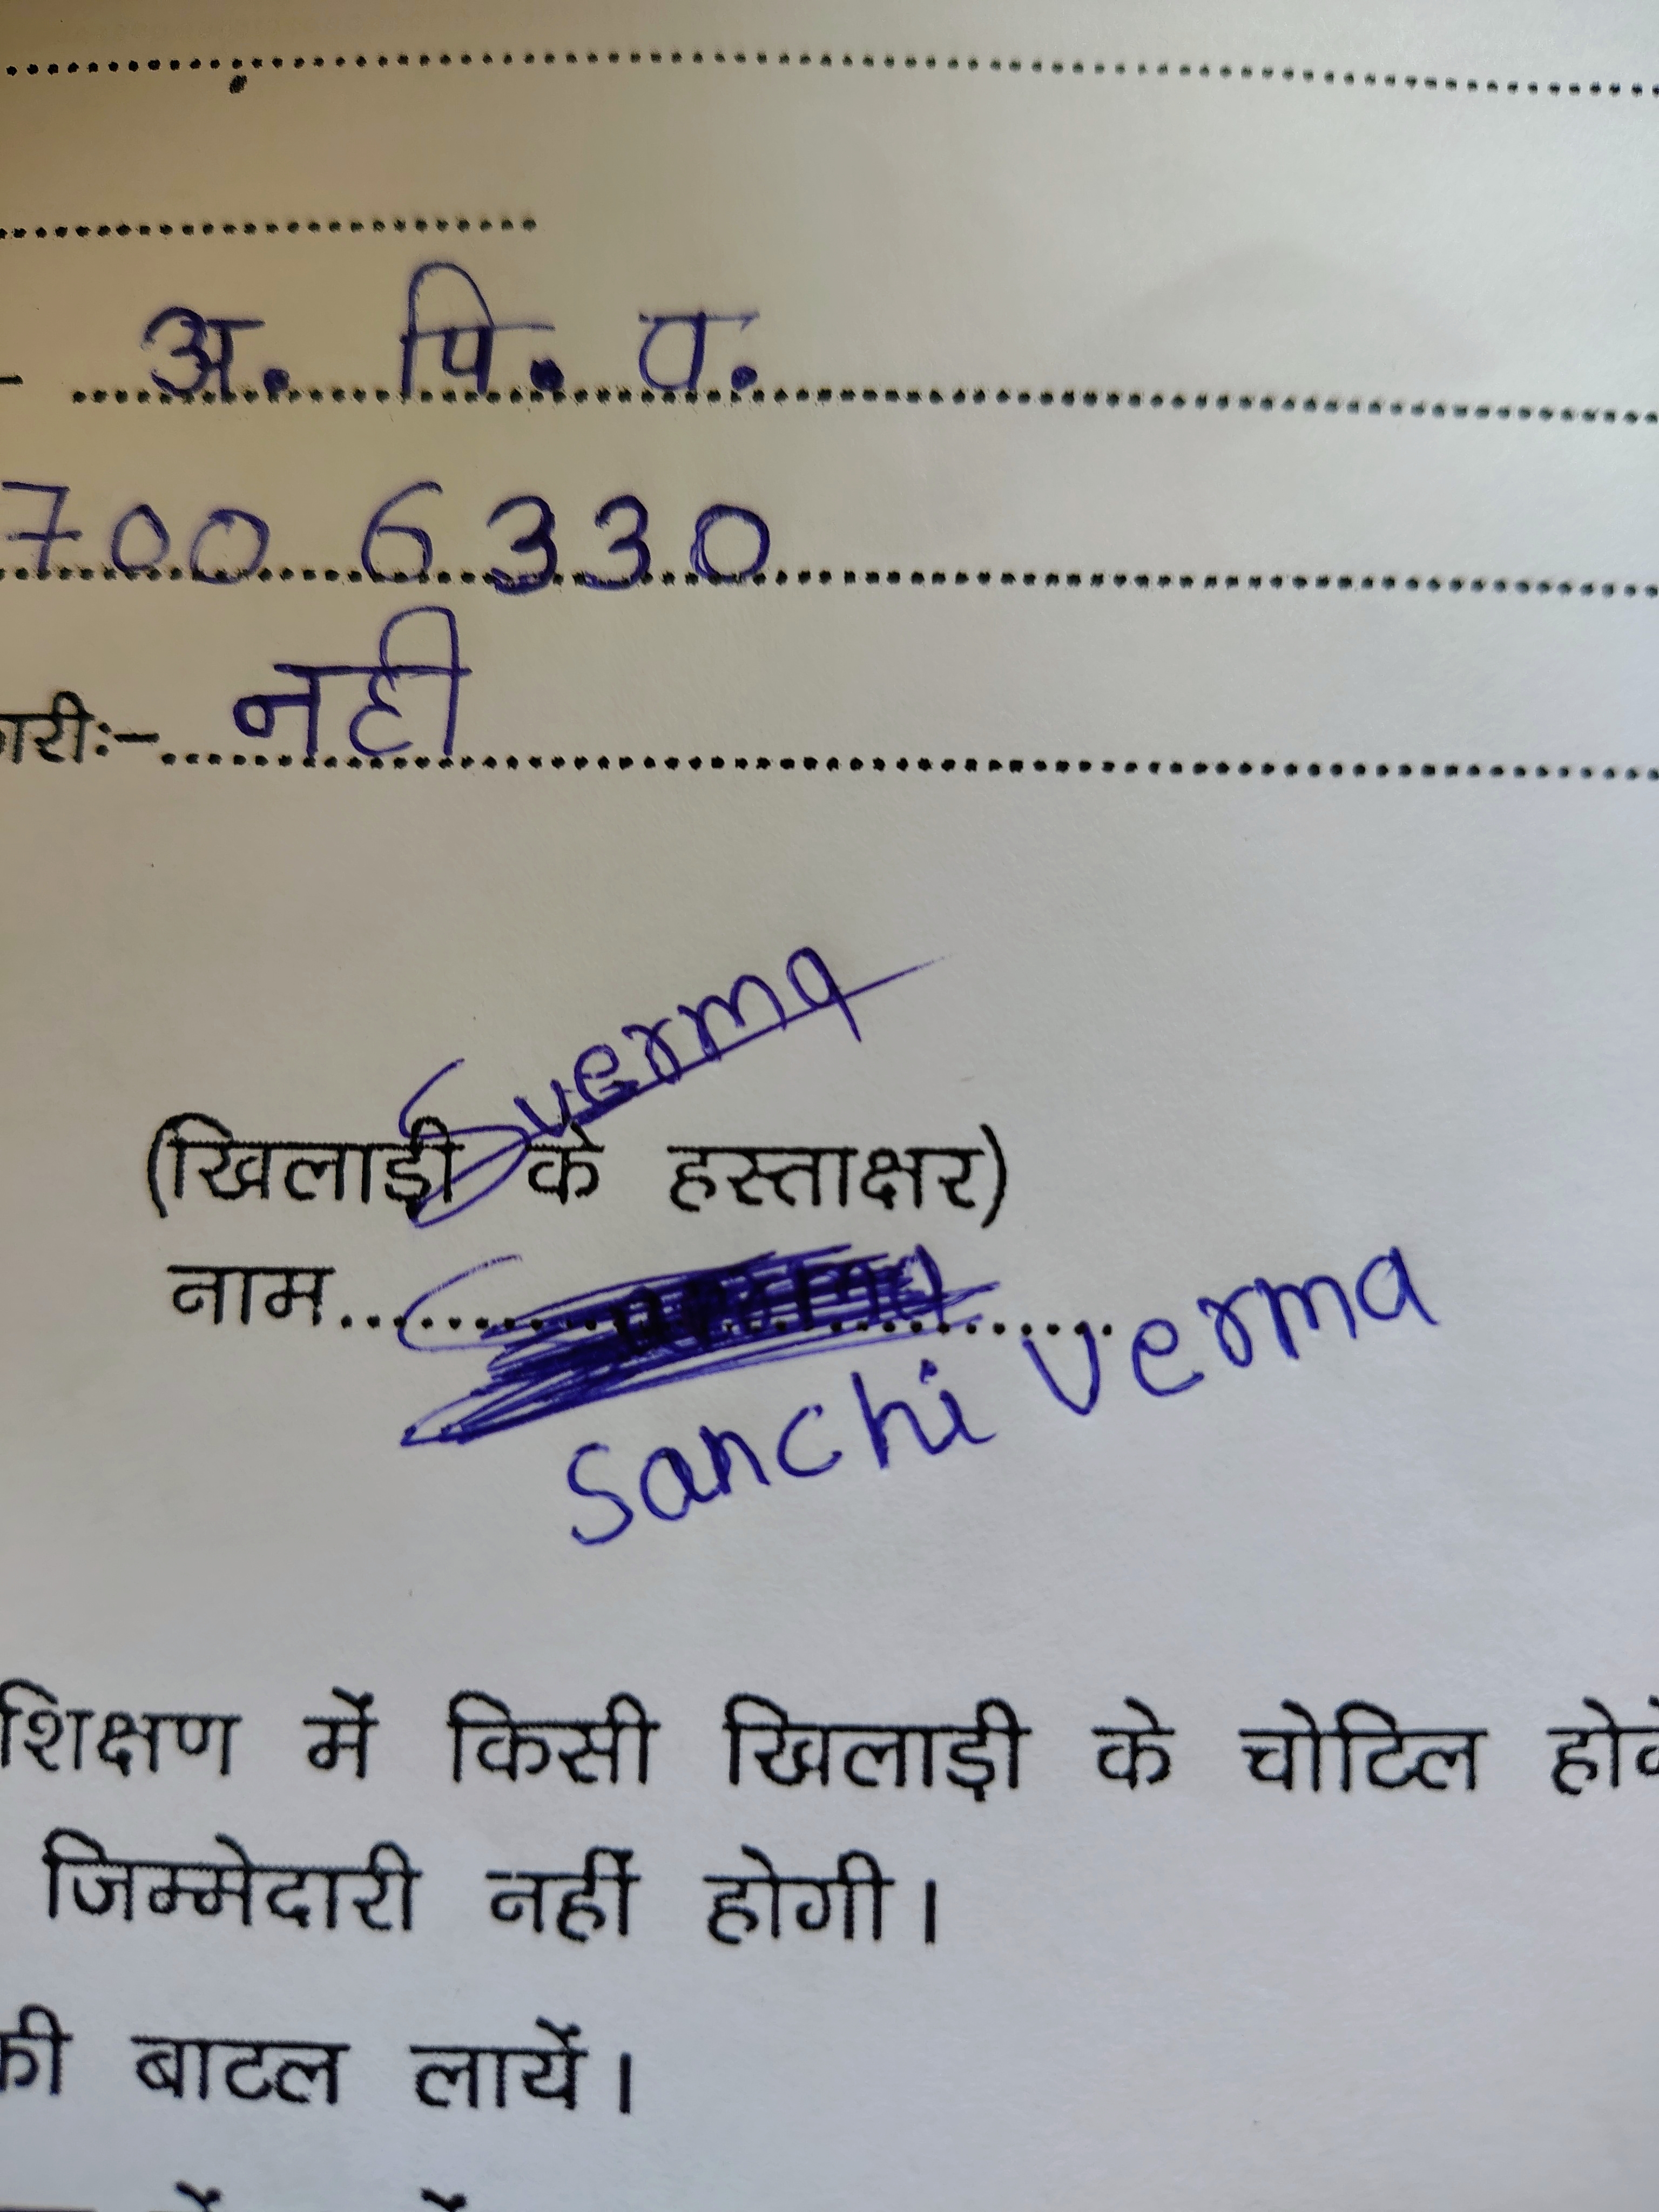 अ. पि. व.
700 6330
नही
Sverma
(खिलाड़ी के हस्ताक्षर)
नाम
Sanchi Verma
में किसी खिलाड़ी के चोटिल
जिम्मेदारी नहीं होगी।
की बाटल लायें।